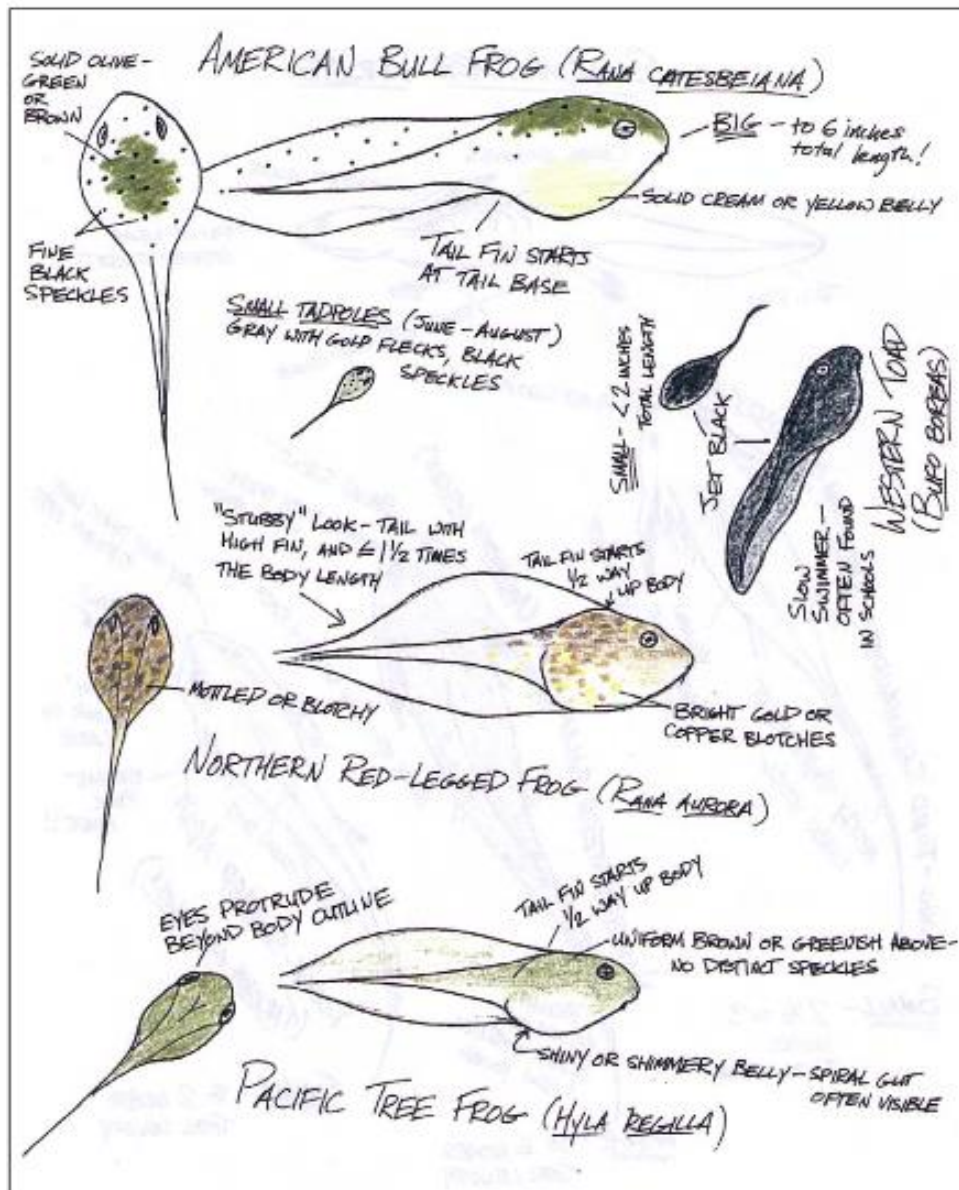 AMERICAN BULL FROG (RANA CATESBEIANA)
SOLID OLIVE-
GREEN
OR
BROWN
BIG – to 6 inches
total length!
SOLID CREAM OR YELLOW BELLY
TAIL FIN STARTS
AT TAIL BASE
FINE
BLACK
SPECKLES
SMALL TADPOLES (JUNE – AUGUST)
GRAY WITH GOLD FLECKS, BLACK
SPECKLES
SMALL – < 2 INCHES
TOTAL LENGTH
JET BLACK
WESTERN TOAD
(BUFO BOREAS)
SLOW
SWIMMER –
OFTEN FOUND
IN SCHOOLS
"STUBBY" LOOK – TAIL WITH
HIGH FIN, AND ≤ 1 1/2 TIMES
THE BODY LENGTH
TAIL FIN STARTS
1/2 WAY
UP BODY
MOTTLED OR BLOTCHY
BRIGHT GOLD OR
COPPER BLOTCHES
NORTHERN RED-LEGGED FROG (RANA AURORA)
EYES PROTRUDE
BEYOND BODY OUTLINE
TAIL FIN STARTS
1/2 WAY UP BODY
UNIFORM BROWN OR GREENISH ABOVE –
NO DISTINCT SPECKLES
SHINY OR SHIMMERY BELLY – SPIRAL GUT
OFTEN VISIBLE
PACIFIC TREE FROG (HYLA REGILLA)